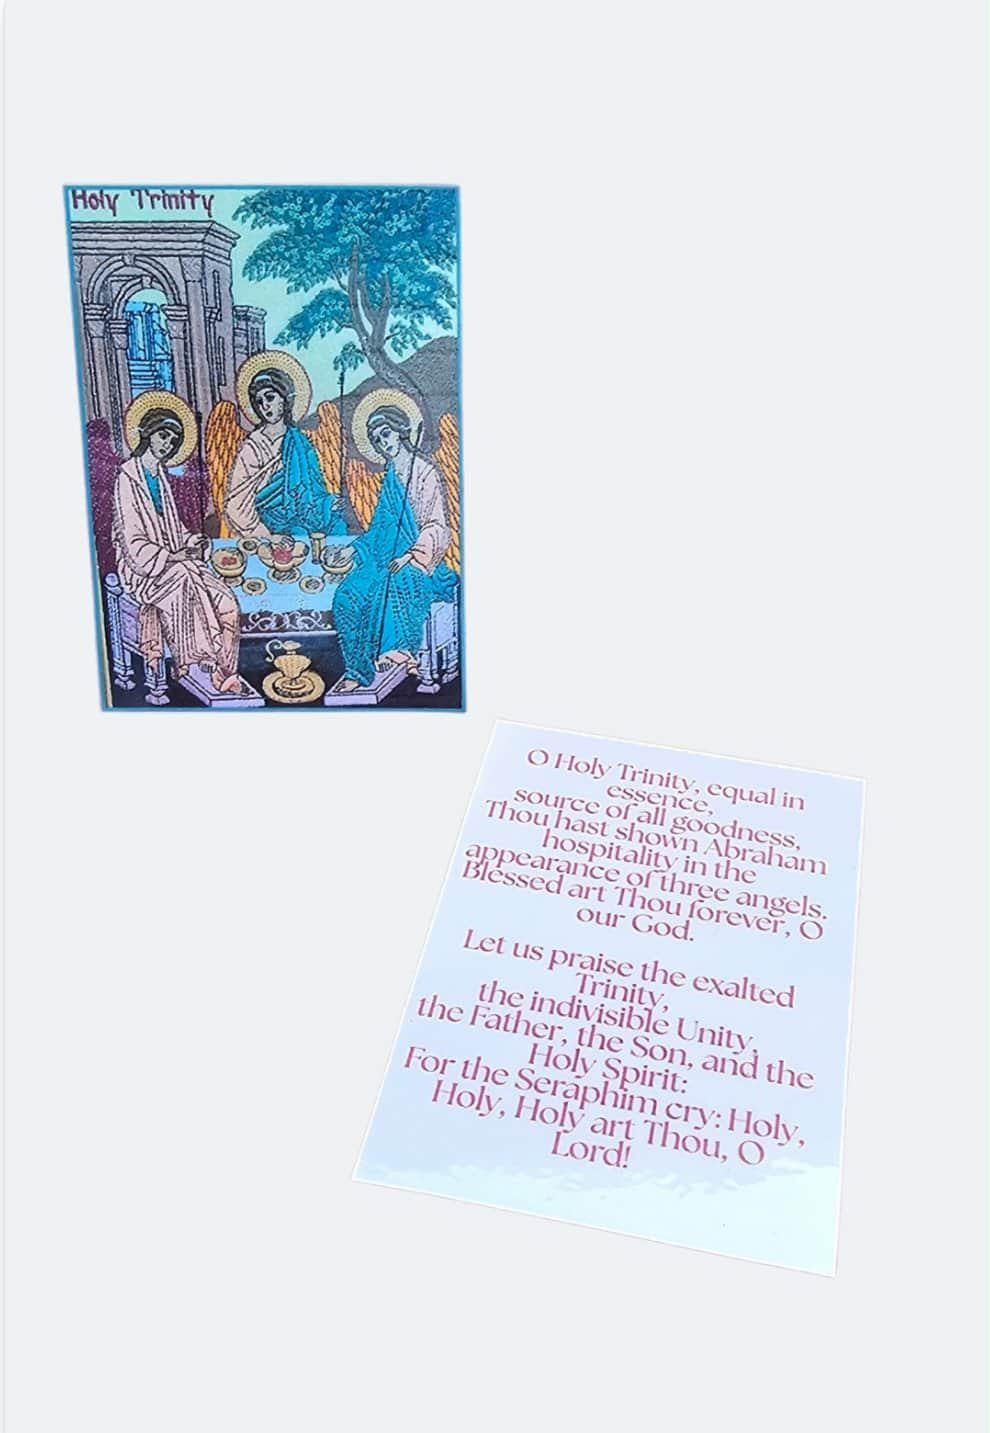 Holy Trinity
O Holy Trinity, equal in
essence,
source of all goodness,
Thou hast shown Abraham
hospitality in the
appearance of three angels.
Blessed art Thou forever, O
our God.
Let us praise the exalted
Trinity,
the indivisible Unity,
the Father, the Son, and the
Holy Spirit:
For the Seraphim cry: Holy,
Holy, Holy art Thou, O
Lord!